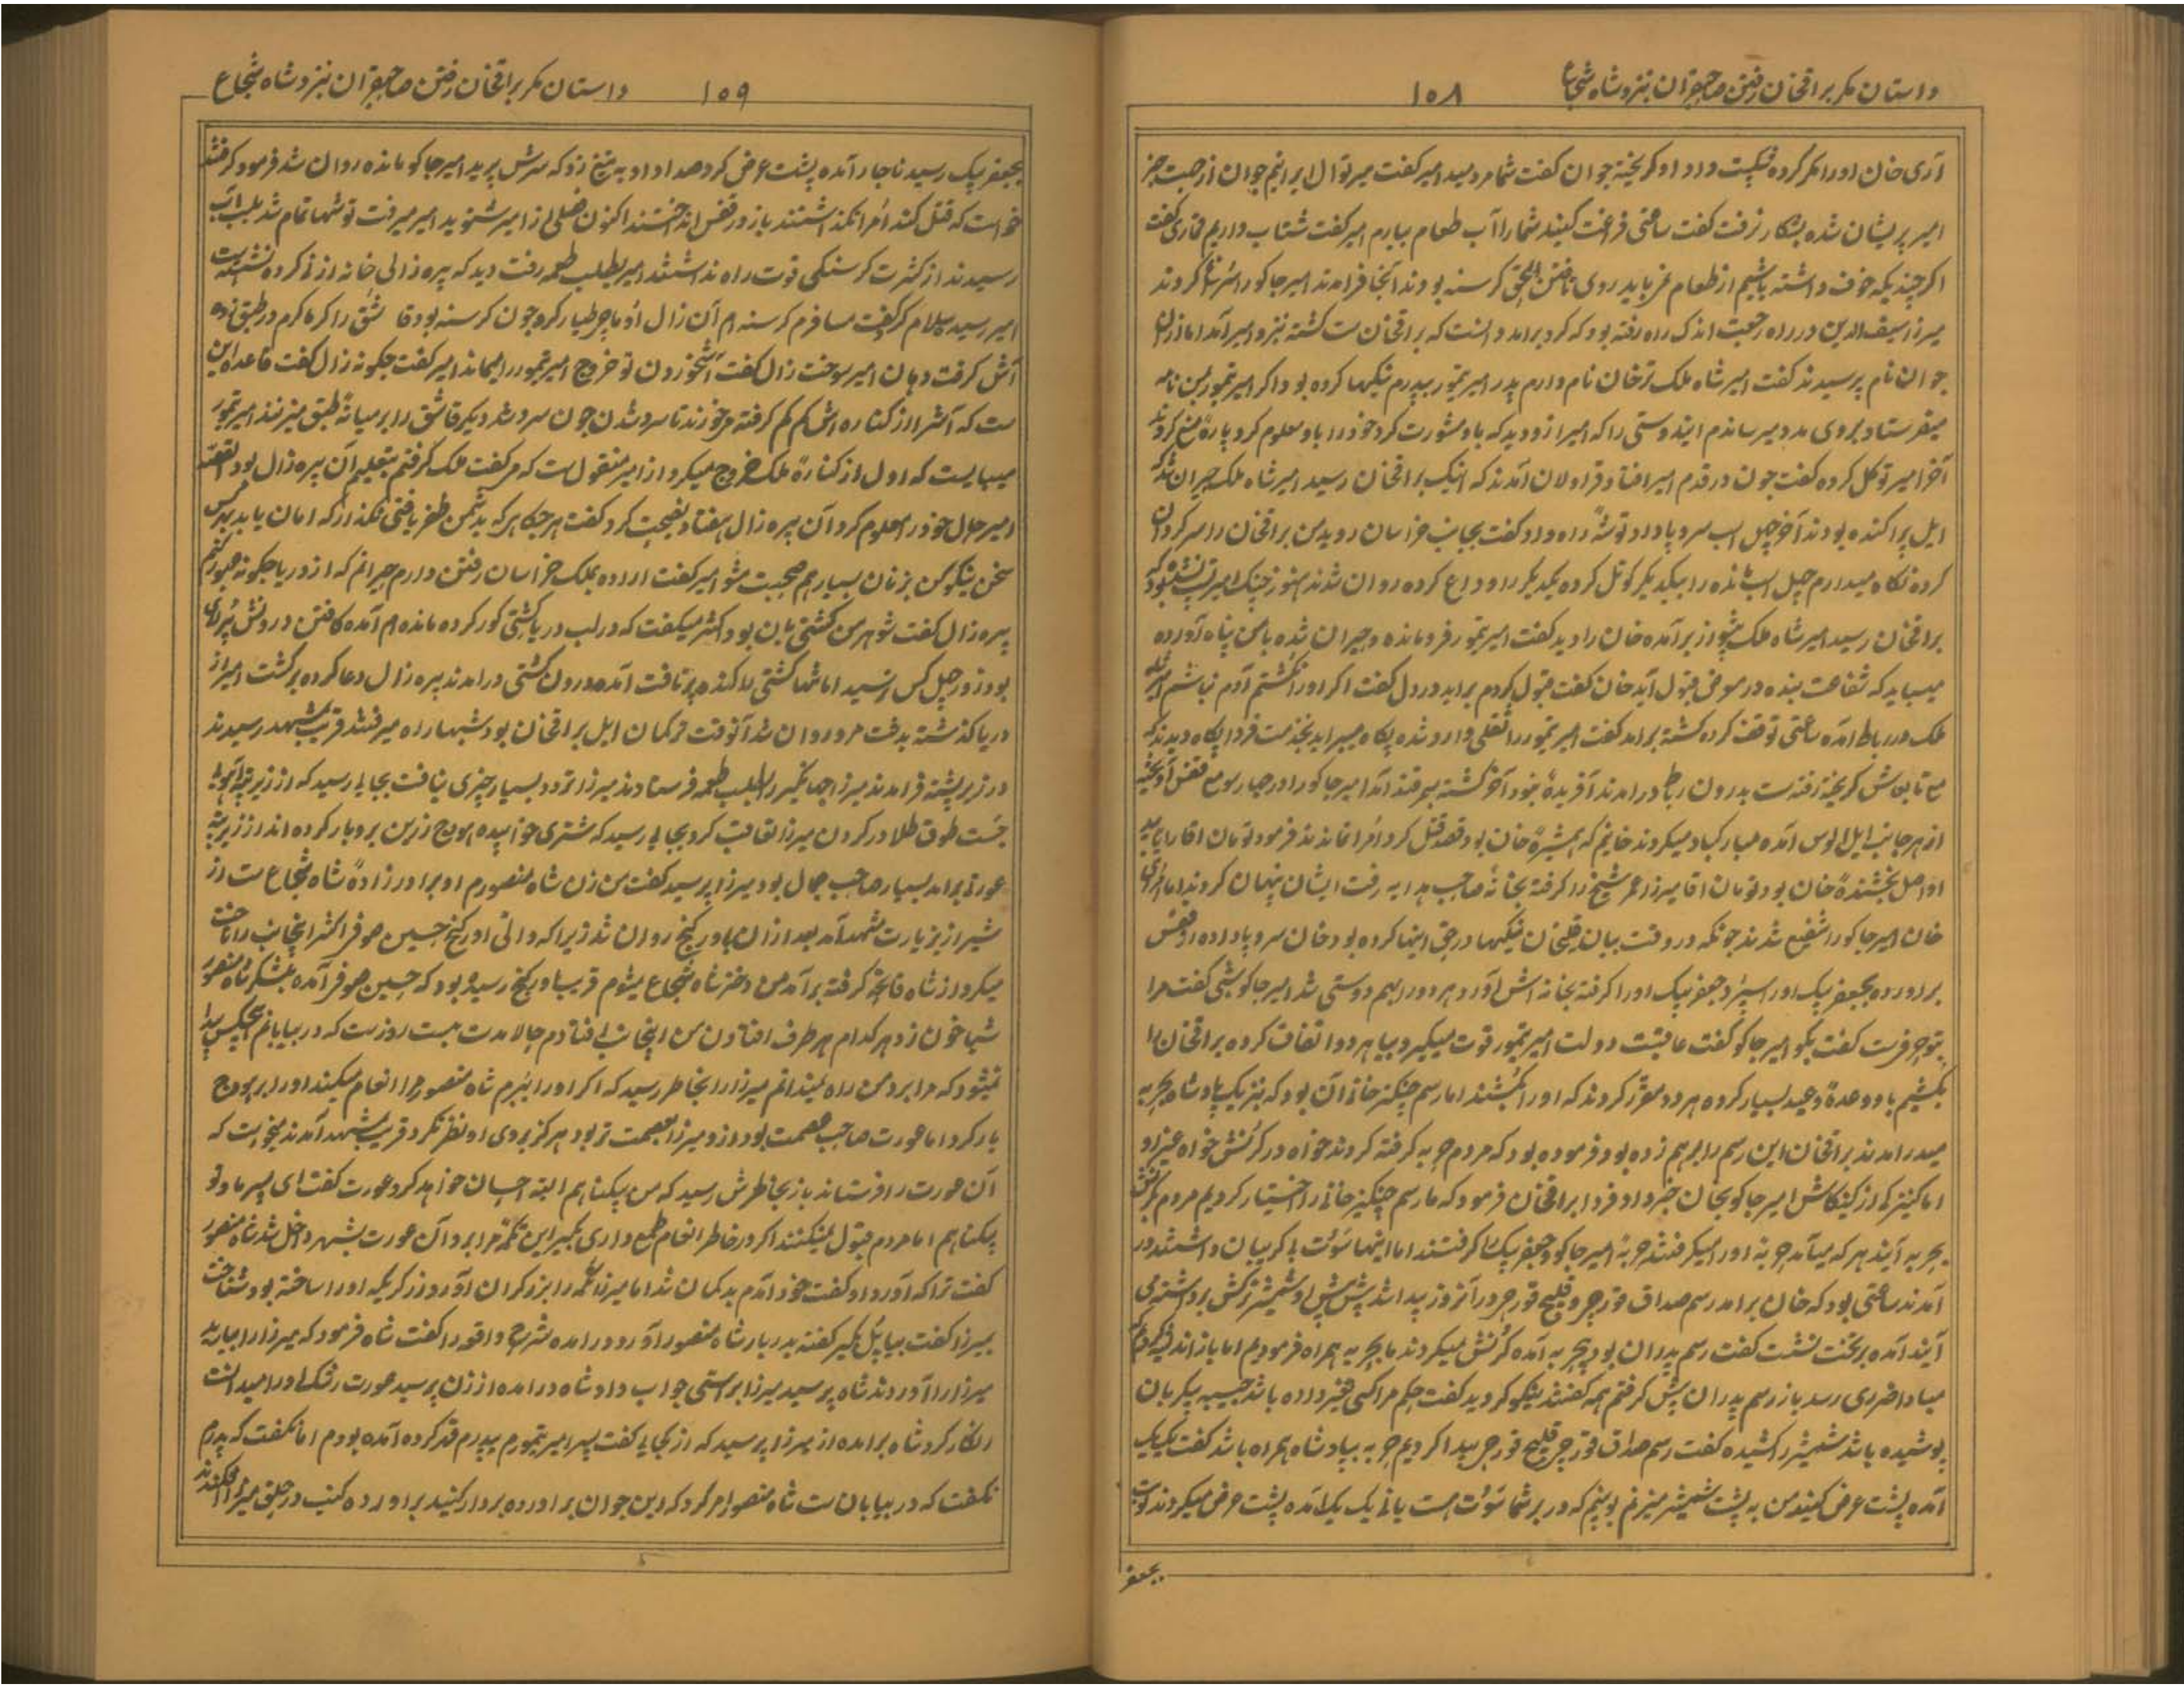 داستان مکر براقخان رفتن صاحبقران بنزد شاه شجاع
۱۰۸
آری خان اورا مکر کرده شکست داد او کریخته جوان کفت شما مردمید امیر کفت میر توال ایرانیم جوان از جهت
امیر پریشان شده بشکار نرفت کفت ساعتی فراغت کنید شمارا آب طعام بیارم امیر کفت شتاب داریم قماری کفت
اکر چندیکه خوف داشته باشیم از طعام کرسنه بودند آنجا فرامدند امیر جاکو را کردند
میرزا سیف الدین در راه رجعت اندک راه رفته بود که کرد برامد دانست که براقخان ست کشته بنزد امیر آمد اما ازان
جوان نام پرسیدند کفت امیر شاه ملک ترخان نام دارم پدر امیر تیمور بپدرم نیکیها کرده بود اکر امیر تیمور بمن نامه
میفرستاد بروی مدد میرساندم اینه دوستی را که امیر ازو دید که باو مشورت کرد خودرا باو معلوم کرد پاره منع کردند
آخر امیر توکل کرده کفت چون در قدم امیر افتاد قراولان آمدند که اینک براقخان رسید امیر شاه ملک حیران شد که
ایل پراکنده بودند آخر چهل اسب سروپا داد توشهٔ راه داد کفت بجانب خراسان روید من براقخان را سرکردان
کرده نکاه میدارم چهل اسب مانده را بیکدیکر کوتل کرده یکدیکررا وداع کرده روان شدند هنوز
براقخان رسید امیر شاه ملک پیشواز برآمده خان را دید کفت امیر تیمور فرومانده و حیران شده بامن پناه آورده
میباید که شفاعت بنده در معرض قبول آید خان کفت قبول کردم براید در دل کفت اکر اورا نکشتم آدم نباشم امیر شاه
ملک در رباط آمده ساعتی توقف کرده کشته برامد کفت امیر تیمور را ثقلی وارد شده پکاه میبراید بخدمت فردا پکاه دیدند که
مع تابعانش کریخته رفته ست بدرون رباط درامدند آفریده نبود آخر کشته بسمرقند آمد امیر جاکو را در چارسو مع قفس آویخته
از هر جانب ایل الوس آمده مبارکباد میکردند خانم که همشیرهٔ خان بود قصد قتل کرد امرا نماندند فرمود تومان اقا را
او اصل بخشندهٔ خان بود تومان اقا میرزا عمر شیخ را کرفته بخانهٔ صاحب هدایه رفت ایشان پنهان کردند اما امرای
خان امیر جاکو را شفیع شدند چونکه در وقت بیان قلیخان نیکیها در حق اینها کرده بود خان سروپا داده از قفس
براورده بجعفر بیک اورا سپرد جعفر بیک اورا کرفته بخانه اش آورد هر دو را بهم دوستی شد امیر جاکو شبی کفت مرا
بتو حرفست کفت بکو امیر جاکو کفت عاقبت دولت امیر تیمور قوت میکیرد بیا هر دو اتفاق کرده براقخان را
بکشیم باو وعدهٔ وعید بسیار کرده هر دو مقرر کردند که اورا بکشتند اما رسم چنکیزخانی آن بود که بنزدیک پادشاه بحربه
میدرامدند براقخان این رسم را برهم زده بود فرموده بود که مردم حربه کرفته کردند خواه در کرنش خواه غیر او
اما کنیزکی از کینکاش امیر جاکو بخان خبر داد فردا براقخان فرمود که ما رسم چنکیزخانی را اختیار کردیم مردم بکرنش
بحربه آیند هر که میآمد حربهٔ اورا میکرفتند حربهٔ امیر جاکو و جعفر بیک را کرفتند اما اینها بکریبان داشتند در
آمدند ساعتی بود که خان برامد رسم صداق قورچی و قلیچ قورچی در آنروز پیدا شد پیش پیش او شمشیر ترکش برداشته می
آیند آمده بر تخت نشست کفت رسم پدران بود بحربه آمده کرنش میکردند ما بحربه همراه فرمودیم اما باز اندیشه کردم که
مبادا ضرری رسد باز رسم پدران پیش کرفتم همه کفتند نیکو کردید کفت حکم مرا کسی تغیر داده باشد پیکربان
پوشیده باشد شمشیر را کشیده کفت رسم صداق قورچی قلیچ قورچی پیدا کردیم حربه بپادشاه همراه باشد کفت یکیک
آمده پشت عرض کنید من به پشت شمشیر میزنم بینم که در بر شما هست یا نی یک یک آمده پشت عرض میکردند نوبت
بجعفر
داستان مکر براقخان رفتن صاحبقران بنزد شاه شجاع
۱۰۹
بجعفر بیک رسید ناچار آمده پشت عرض کرد صدا داد به تیغ زد که سرش پرید امیر جاکو مانده روان شد فرمود کرفتند
خواست که قتل کند امرا نکذاشتند باز در قفس انداختند اکنون فصلی از امیر شنوید امیر میرفت توشها تمام شد بلب آب
رسیدند از کثرت کرسنکی قوت راه نداشتند امیر بطلب طعمه رفت دید که پیره زالی خانه از نی کرده نشسته ست
امیر رسید سلام کرد کفت مسافرم کرسنه ام آن زال اوماج طیار کرده چون کرسنه بود قاشق را کرماکرم در طبق زده
آش کرفت دهان امیر سوخت زال کفت آشخوردن تو خروج امیر تیمور را میماند امیر کفت چکونه زال کفت قاعده این
ست که آشرا از کناره اش کم کم کرفته میخورند تا سرد شدن چون سرد شد دیکر قاشق را بر میانهٔ طبق میزنند امیر تیمور
میبایست که اول از کنارهٔ ملک خروج میکرد از امیر منقول است که میکفت ملک کرفتم بتعلیم آن پیره زال بود القصه
امیر حال خودرا معلوم کرد آن پیره زال هفتاد نصیحت کرد کفت هر جا که بدشمن ظفر یافتی نکذار که امان یابد
سخن نیکو کن بزنان بسیار هم صحبت مشو امیر کفت اراده بملک خراسان رفتن دارم حیرانم که از دریا چکونه عبور کنم
پیره زال کفت شوهر من کشتی بان بود اکثر میکفت که در لب دریا کشتی کور کرده مانده ام آمده کافتن درونش پر
بود زور چهل کس نرسید اما تنها کشتی را کنده پرتافت آمده درون کشتی درامدند پیره زال دعا کرده برکشت امیر از
دریا کذشته بدشت مرو روان شد آنوقت ترکمان ایل براقخان بود شبها راه میرفتند قریب مشهد رسیدند
در زیر پشته فرامدند میرزا جهانکیر را بطلب طعمه فرستادند میرزا تردد بسیار چیزی نیافت بجایی رسید که از زیر آهو
جست طوق طلا در کردن میرزا تعاقب کرد بجایی رسید که شتری خوابیده هودج زرین برو بار کرده اند از زیر پشته
عورتی برامد بسیار صاحب جمال بود میرزا پرسید کفت من زن شاه منصورم او برادر زادهٔ شاه شجاع ست از
شیراز بزیارت مشهد آمد بعد ازان باورکنج روان شد زیرا که والی اورکنج حسین صوفی اکثر اینجانب را تاخت
میکرد از شاه فاتحه کرفته برآمد من دختر شاه شجاع میشوم قریب اورکنج رسیده بود که حسین صوفی آمده بلشکر شاه منصور
شباخون زد هر کدام هر طرف افتادن من اینجانب افتادم حالا مدت بیست روزست که در بیابانم هیچکس پیدا
نمیشود که مرا برد من راه نمیدانم میرزارا بخاطر رسید که اکر اورا ببرم شاه منصور مرا انعام میکند اورا بر هودج
بار کرد اما عورت صاحب عصمت بود ازو میرزا بعصمت تر بود هرکز بروی او نظر نکرد قریب مشهد آمدند میخواست که
آن عورت را فرستاند باز بخاطرش رسید که من بیکناهم البته احسان خواهد کرد عورت کفت ای پسر ما و تو
بیکناهم اما مردم قبول نمیکنند اکر در خاطر انعام طمع داری بکیر این تکمهٔ مرا برو آن عورت بشهر داخل شد شاه منصور
کفت ترا که آورد او کفت خود آمدم بدکمان شد اما میرزا تکمه را بزرکران آورد زرکریکه اورا ساخته بود شناخت
بمیرزا کفت بیا پل بکیر کفته بدربار شاه منصور آورد درامده شرح واقعه را کفت شاه فرمود که میرزارا بیارید
میرزارا آوردند شاه پرسید میرزا براستی جواب داد شاه درامده از زن پرسید عورت رشک او را میدانست
انکار کرد شاه برامده از میرزا پرسید که از کجایی کفت پسر امیر تیمورم پدرم قهر کرده آمده بودم اما نکفت که پدرم
نکفت که در بیابان ست شاه منصور امر کرد که این جوان برآورده بردار کنید برآورده کنب در حلق میرزا افکندند